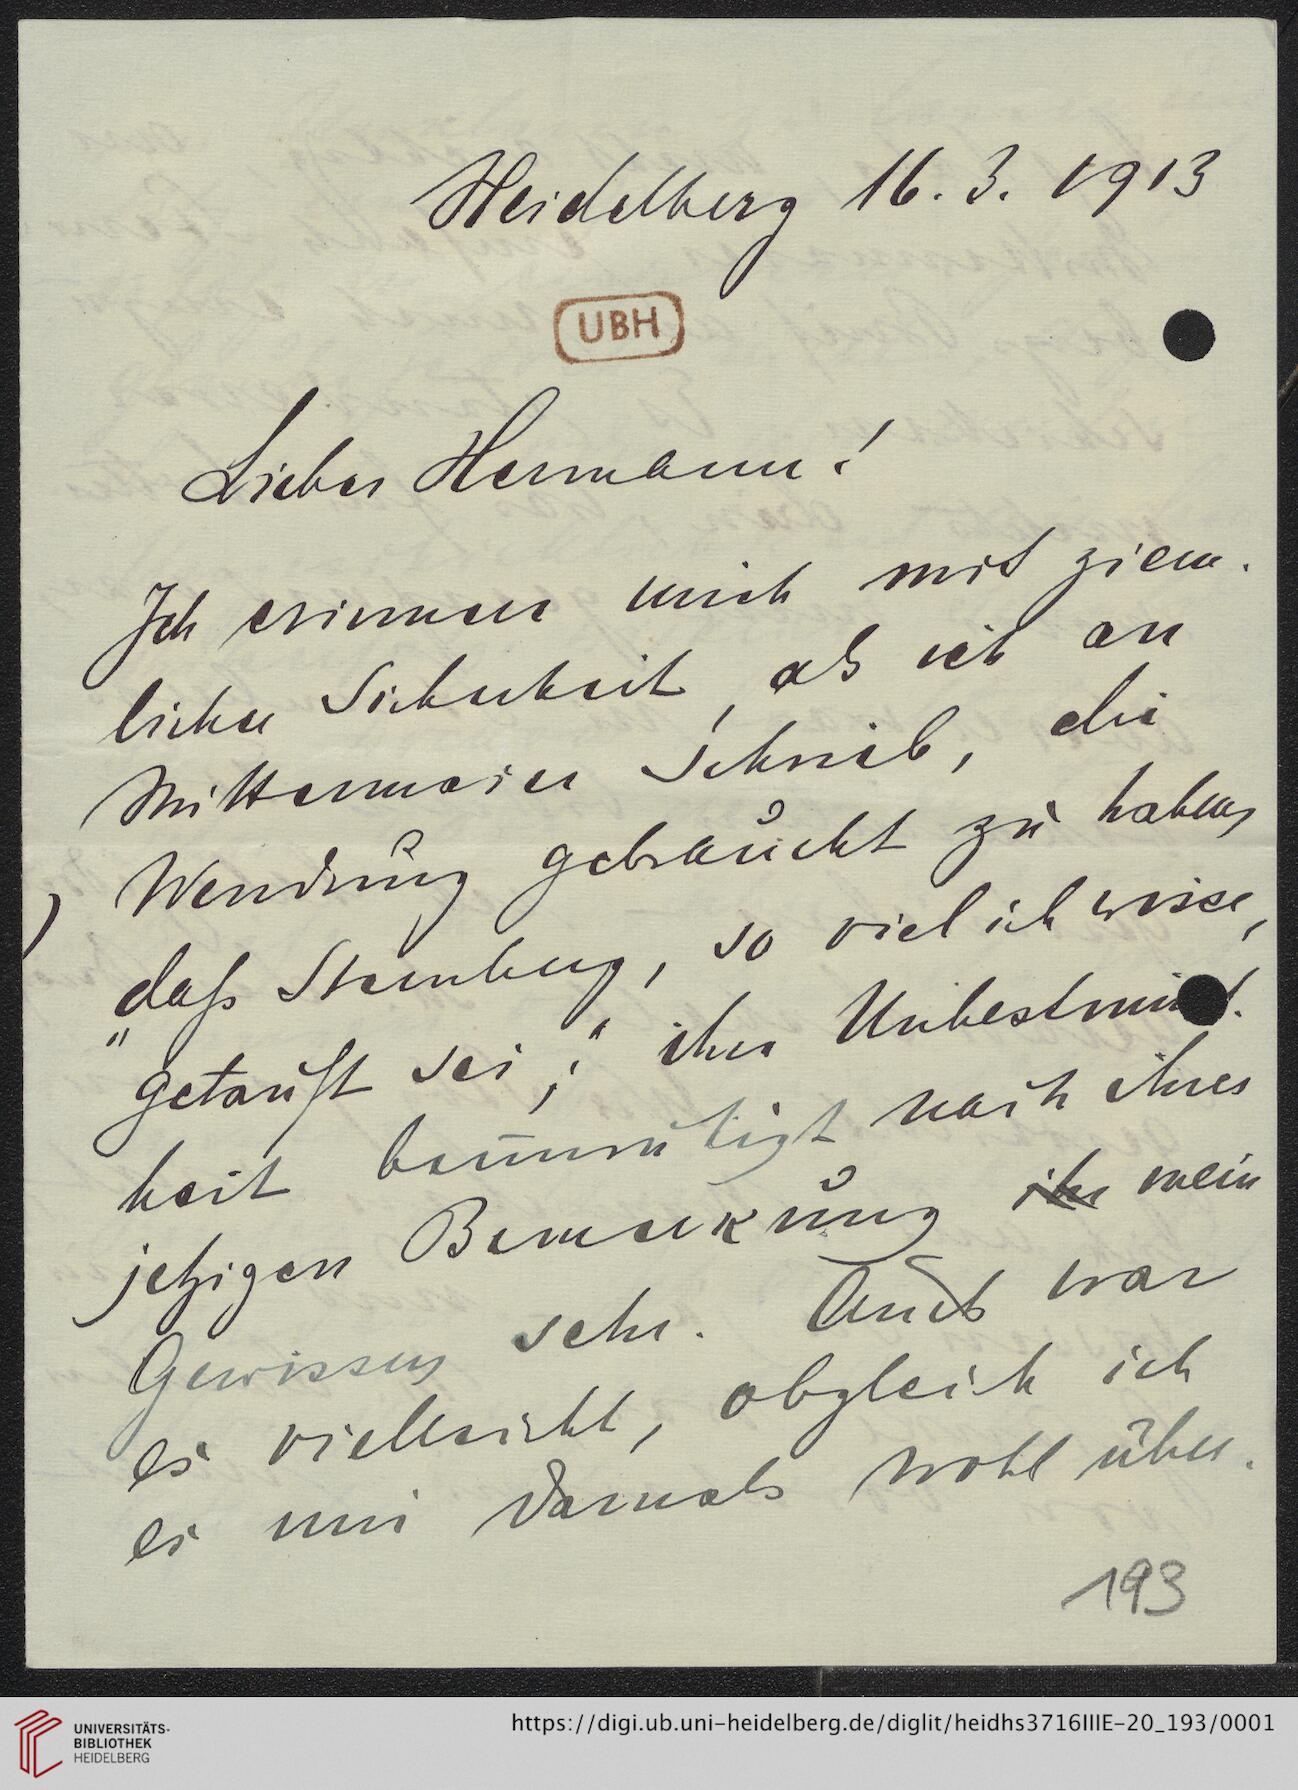 Heidelberg 16. 3. 1913
UBH
Lieber Hermann!
Ich erinnere mich mit ziem-
licher Sicherheit, als ich an
Mittermaier schrieb, die
Wendung gebraucht zu haben,
"daß Sternberg, so viel ich wisse,
getauft sei;" ihre Unbestimmt-
heit beunruhigt nach Ihrer
jetzigen Bemerkung mein
Gewissen sehr. Auch war
es vielleicht, obgleich ich
es mir damals wohl über-
193
UNIVERSITÄTS-
BIBLIOTHEK
HEIDELBERG
https://digi.ub.uni-heidelberg.de/diglit/heidhs3716IIIE-20_193/0001